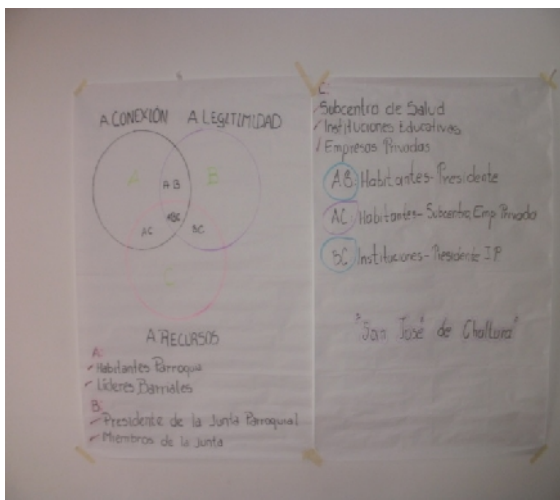 A CONEXIÓN A LEGITIMIDAD
A AB B
ABC
AC BC
C
A RECURSOS
A:
Habitantes Parroquia
Líderes Barriales
B:
Presidente de la Junta Parroquial
Miembros de la Junta
C:
Subcentro de Salud
Instituciones Educativas
Empresas Privadas
AB: Habitantes-Presidente
AC: Habitantes-Subcentro, Emp Privada
BC: Instituciones-Presidente J.P
"San José de Chaltura"